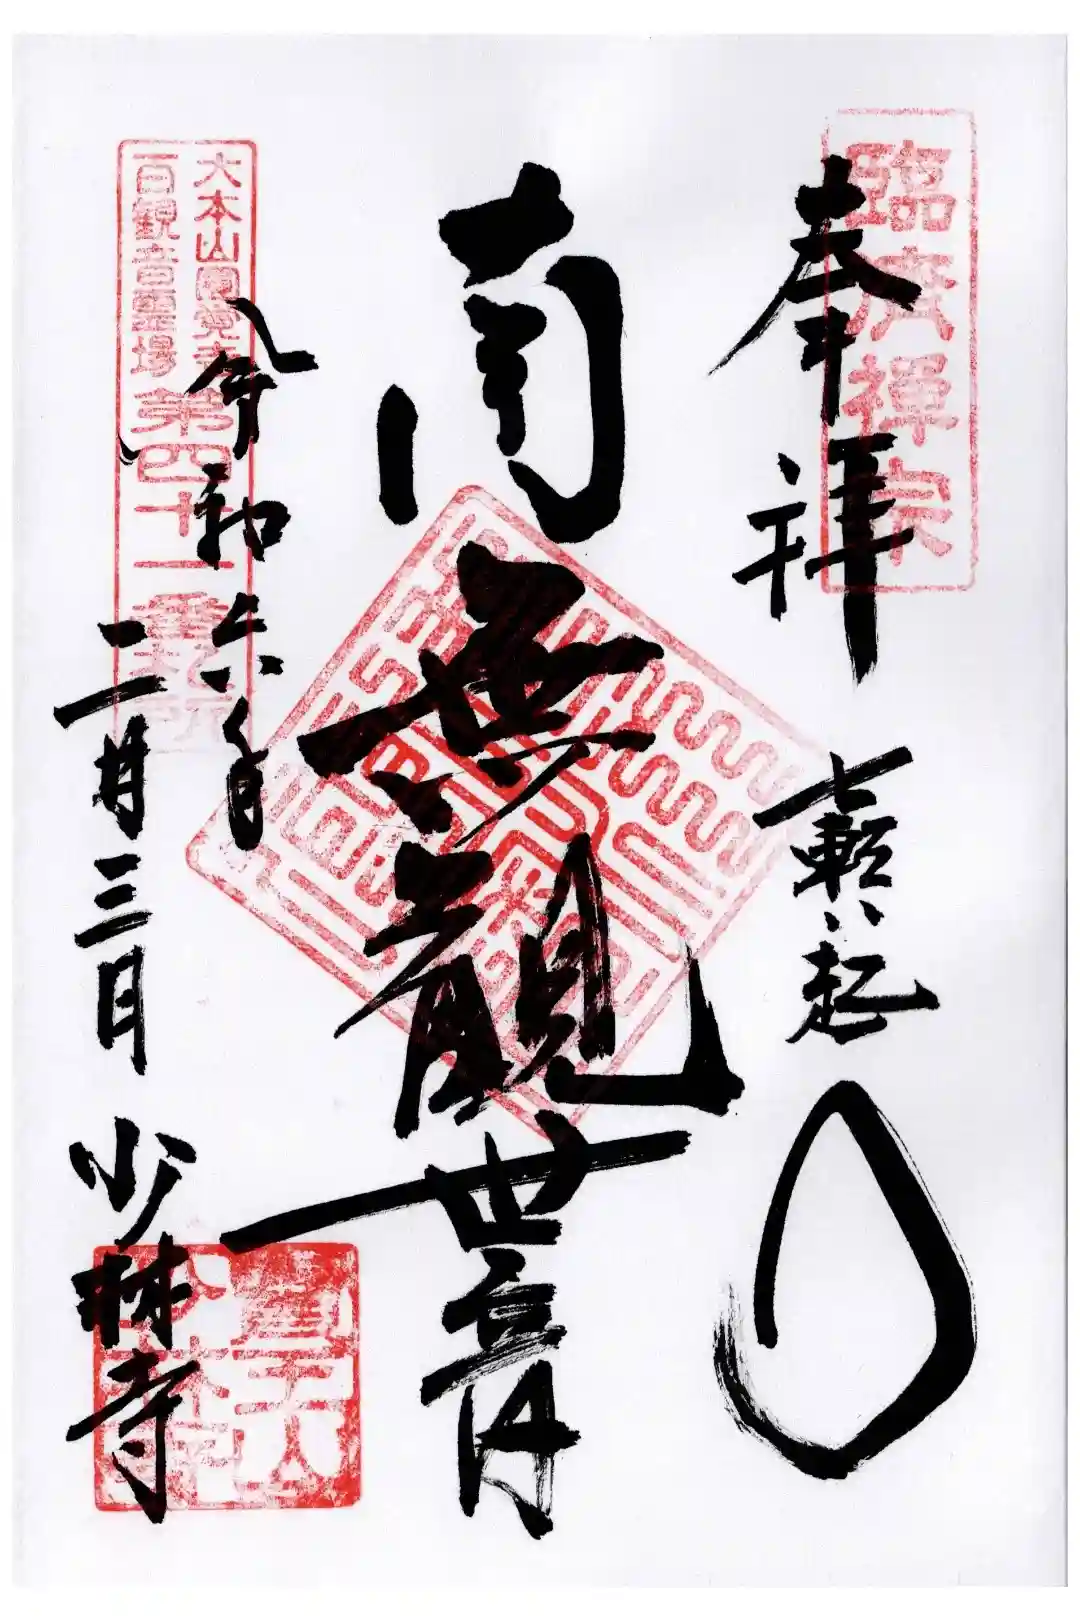 臨済禅宗
奉拝
七転八起
南無観世音
大本山圓覚寺
百観音霊場
第四十一番札所
令和六年
二月三日
少林寺